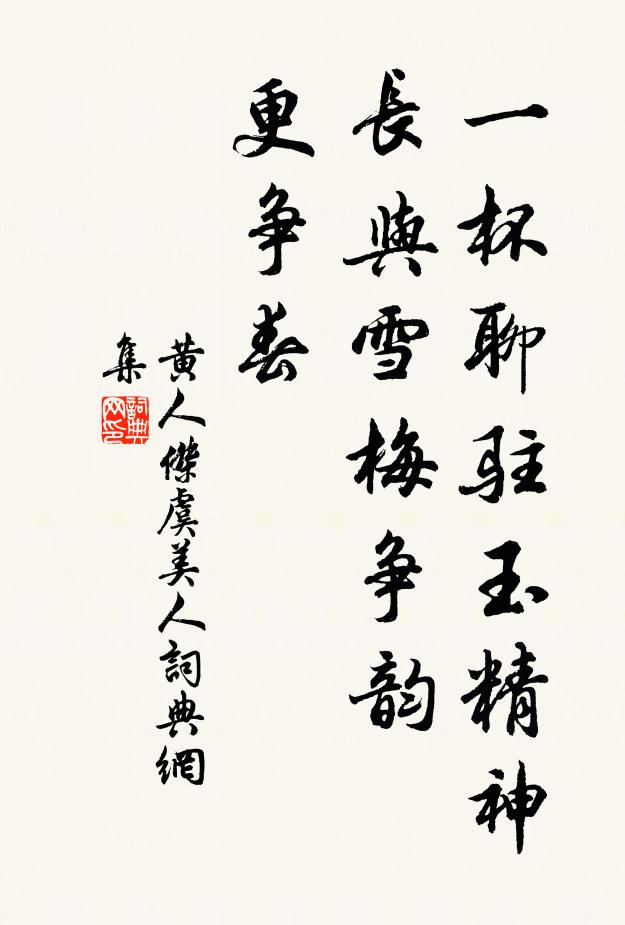 一杯聊駐玉精神
長與雪梅爭韵
更爭春
黄人傑虞美人詞典網
集
詞典網印